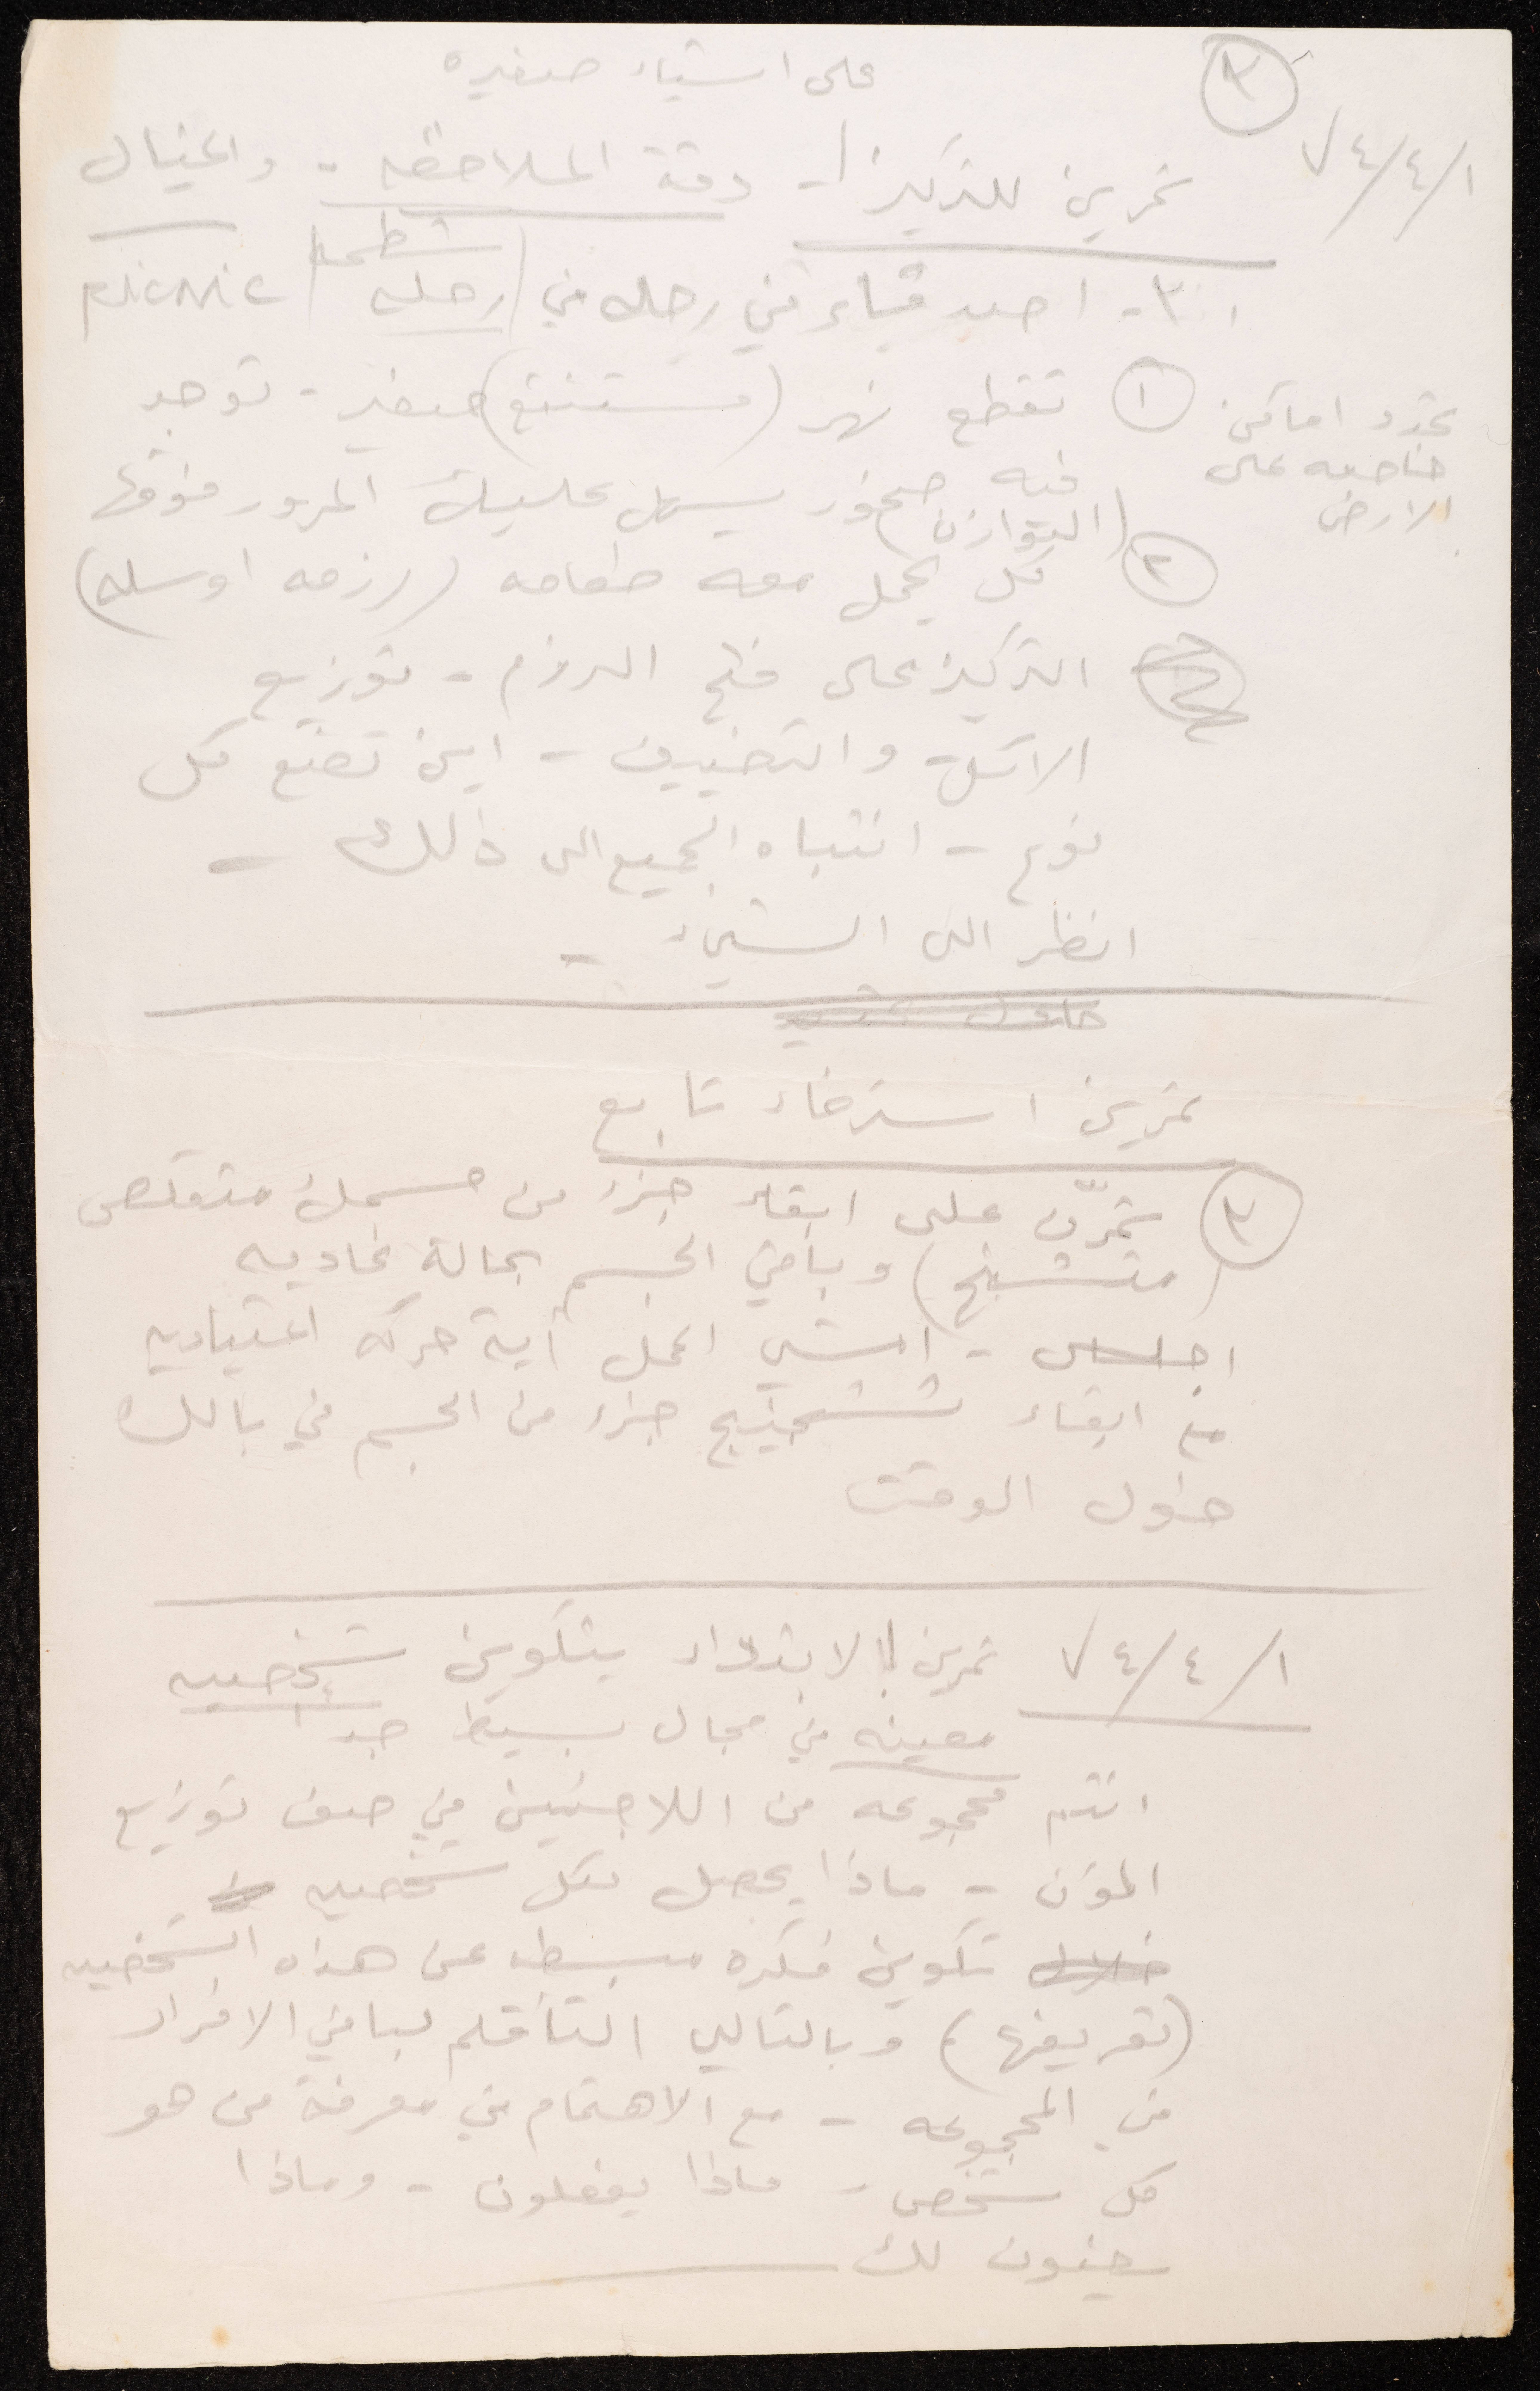 على اشياء صغيره
٣
٧٤/٤/١
تمرين للتركيز - دقة الملاحظه - والخيال
شطحه
٣ - احمد في رحله في (رحله) picnic
١ تقطع نهر (مستنقع) صغير - توجد
تحدد اماكن
خاصه على
الارض
فيه صخور يسهل عليك المرور فوقها
(التوازن)
٢ كل يحمل معه طعامه (رزمه او سله)
التركيز على فتح الرزم - توزيع
الاكل - والتضييف - اين تضع كل
نوع - انتباه الجميع الى ذلك -
انظر الى الشيء -
تمرين استرخاء تابع
٣ تمرّن على ابقاء جزء من جسمك متقلص
(متشنج) وباقي الجسم بحالة عاديه
اجلس - امشي اعمل أية حركه اعتياديه
مع ابقاء تشنج جزء من الجسم في بالك
طول الوقت
٧٤/٤/١ تمرين الابتداء بتكوين شخصيه
معينه في مجال بسيط جدا
انتم مجموعه من اللاجئين في صف توزيع
المؤن - ماذا يحصل لكل شخصيه
خلال تكوين فكره مبسطه عن هذه الشخصيه
(تعريفها) وبالتالي التأقلم لباقي الافراد
في المجموعه - مع الاهتمام في معرفة من هو
كل شخص - ماذا يفعلون - وماذا
يعنون لك